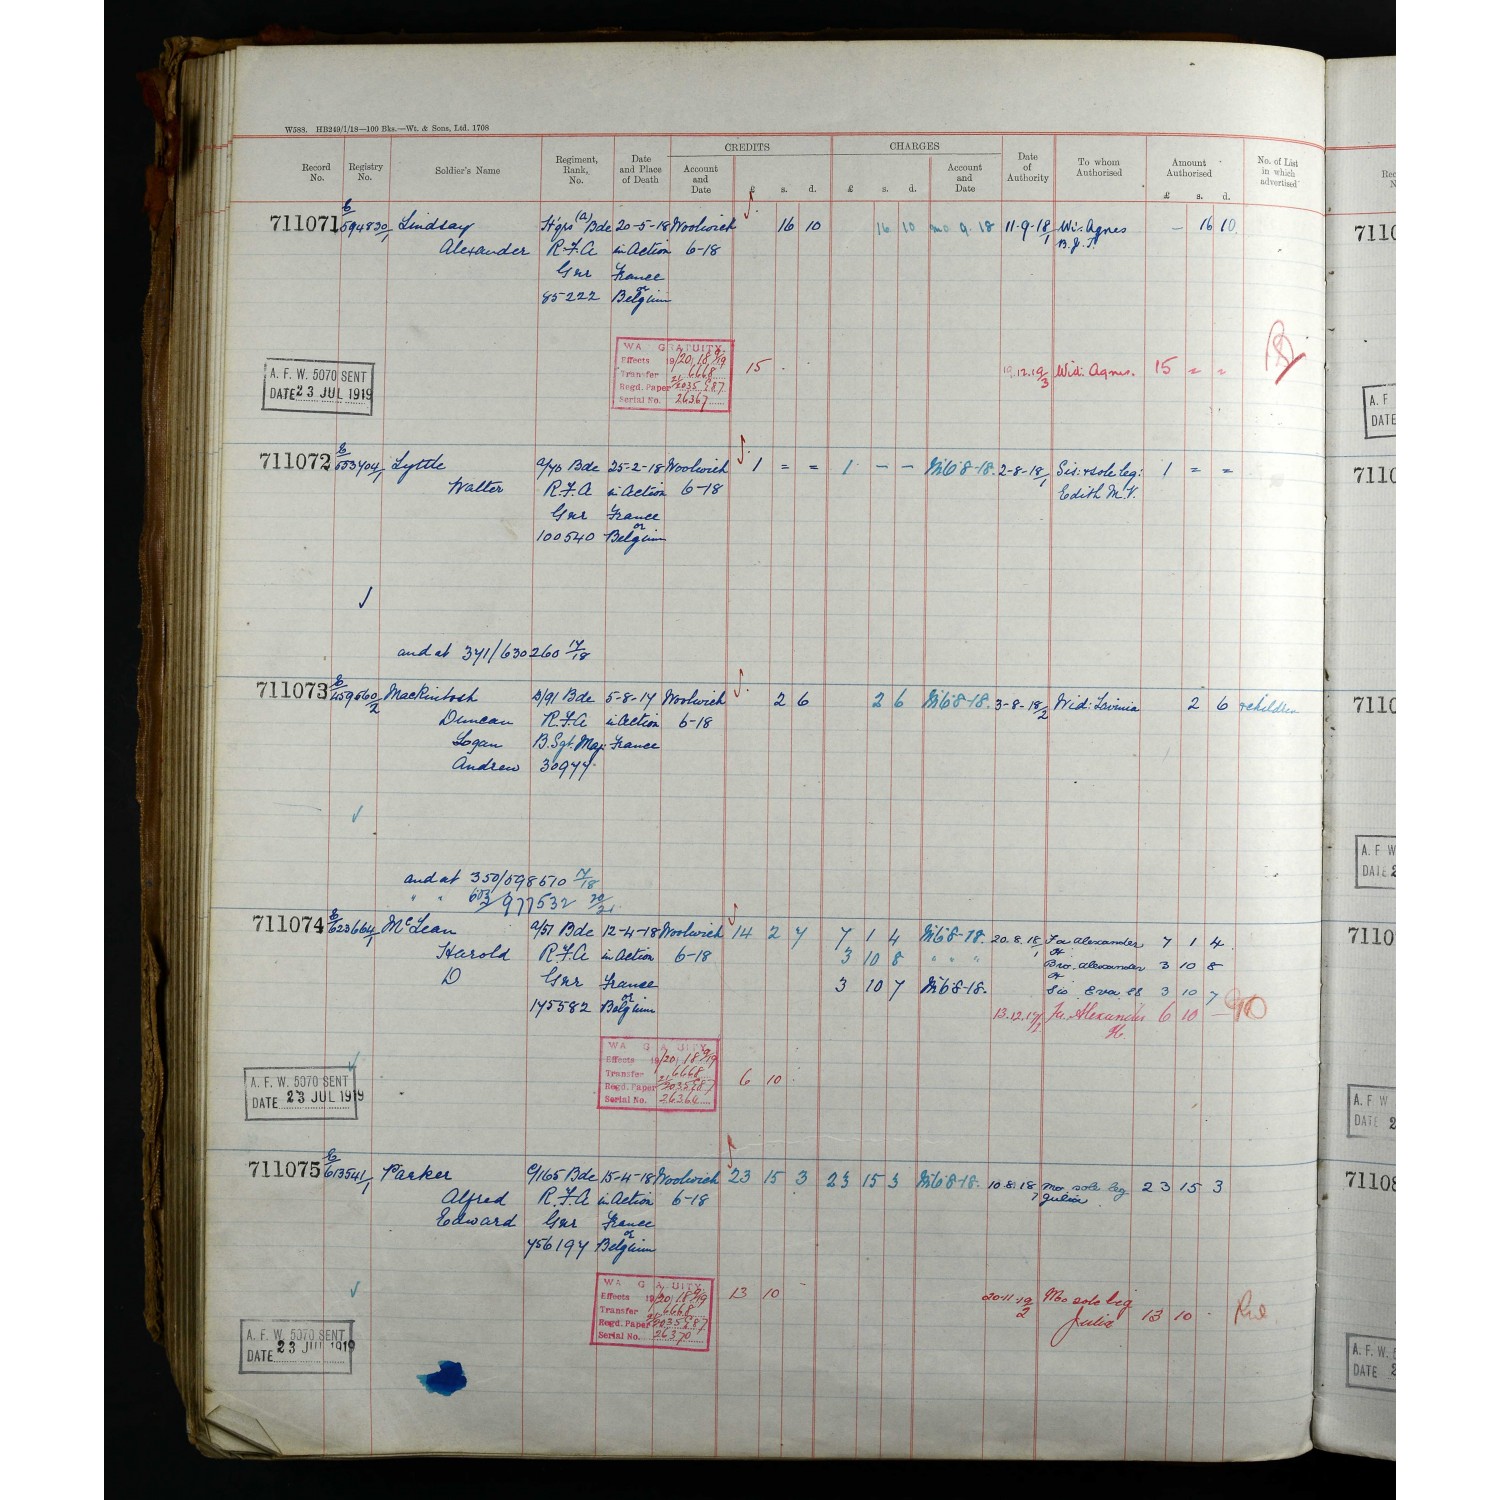 W588. HB249/1/18—100 Bks.—Wt. & Sons, Ltd. 1708
CREDITS CHARGES
Record No. Registry No. Soldier's Name Regiment, Rank, No. Date and Place of Death Account and Date £ s. d. £ s. d. Account and Date Date of Authority To whom Authorised Amount Authorised £ s. d. No. of List in which advertised
711071 E 594830/1 Lindsay Hqrs (a) Bde 20-5-18 Woolwich 16 10 16 10 9 18 11-9-18/1 Wi. Agnes — 16 10
Alexander R.F.A in Action 6-18 B.J.T.
Gnr France
85222 or Belgium
WAR GRATUITY
Effects 19/20/18 9/19 15 - 19.12.19/3 Wid: Agnes. 15 = =
Transfer 6668
Regd. Paper 21/2035587
Serial No. 26367
A. F. W. 5070 SENT
DATE 23 JUL 1919
711072 E 553404/1 Lyttle a/70 Bde 25-2-18 Woolwich 1 = = 1 — — 8-18. 2-8-18/1 Sis: & sole leg: 1 = =
Walter R.F.A in Action 6-18 Edith M.V.
Gnr France
100540 or Belgium
and at 371/630260 17/18
711073 E 459660/2 Mackintosh D/91 Bde 5-8-17 Woolwich 2 6 2 6 8-18. 3-8-18/2 Wid: Lavinia 2 6 & children
Duncan R.F.A in Action 6-18
Logan B. Sgt. Maj. France
Andrew 30977
and at 350/598510 7/18
" " 603/977532 20/21
711074 E 623664/1 McLean a/51 Bde 12-4-18 Woolwich 14 2 7 7 1 4 8-18. 20.8.18/1 Fa Alexander H 7 1 4
Harold R.F.A in Action 6-18 3 10 8 " " " Bro. Alexander H 3 10 8
D Gnr France 3 10 7 8-18. Sis Eva E8 3 10 7
175582 or Belgium 13.12.19/2 Fa. Alexander H. 6 10 —
WAR GRATUITY
Effects 19/20/18 9/19
Transfer 6668 6 10
Regd. Paper 21/2035587
Serial No. 26364
A. F. W. 5070 SENT
DATE 23 JUL 1919
711075 E 613541/1 Parker C/165 Bde 15-4-18 Woolwich 23 15 3 23 15 3 8-18. 10.8.18/7 Mo sole leg 23 15 3
Alfred R.F.A in Action 6-18 Julia
Edward Gnr France
756197 or Belgium
WAR GRATUITY
Effects 19/20/18 9/19 13 10 - 20-11-19/2 Mo sole leg
Transfer 6668 Julia 13 10 -
Regd. Paper 21/2035587
Serial No. 26370
A. F. W. 5070 SENT
DATE 23 JUL 1919